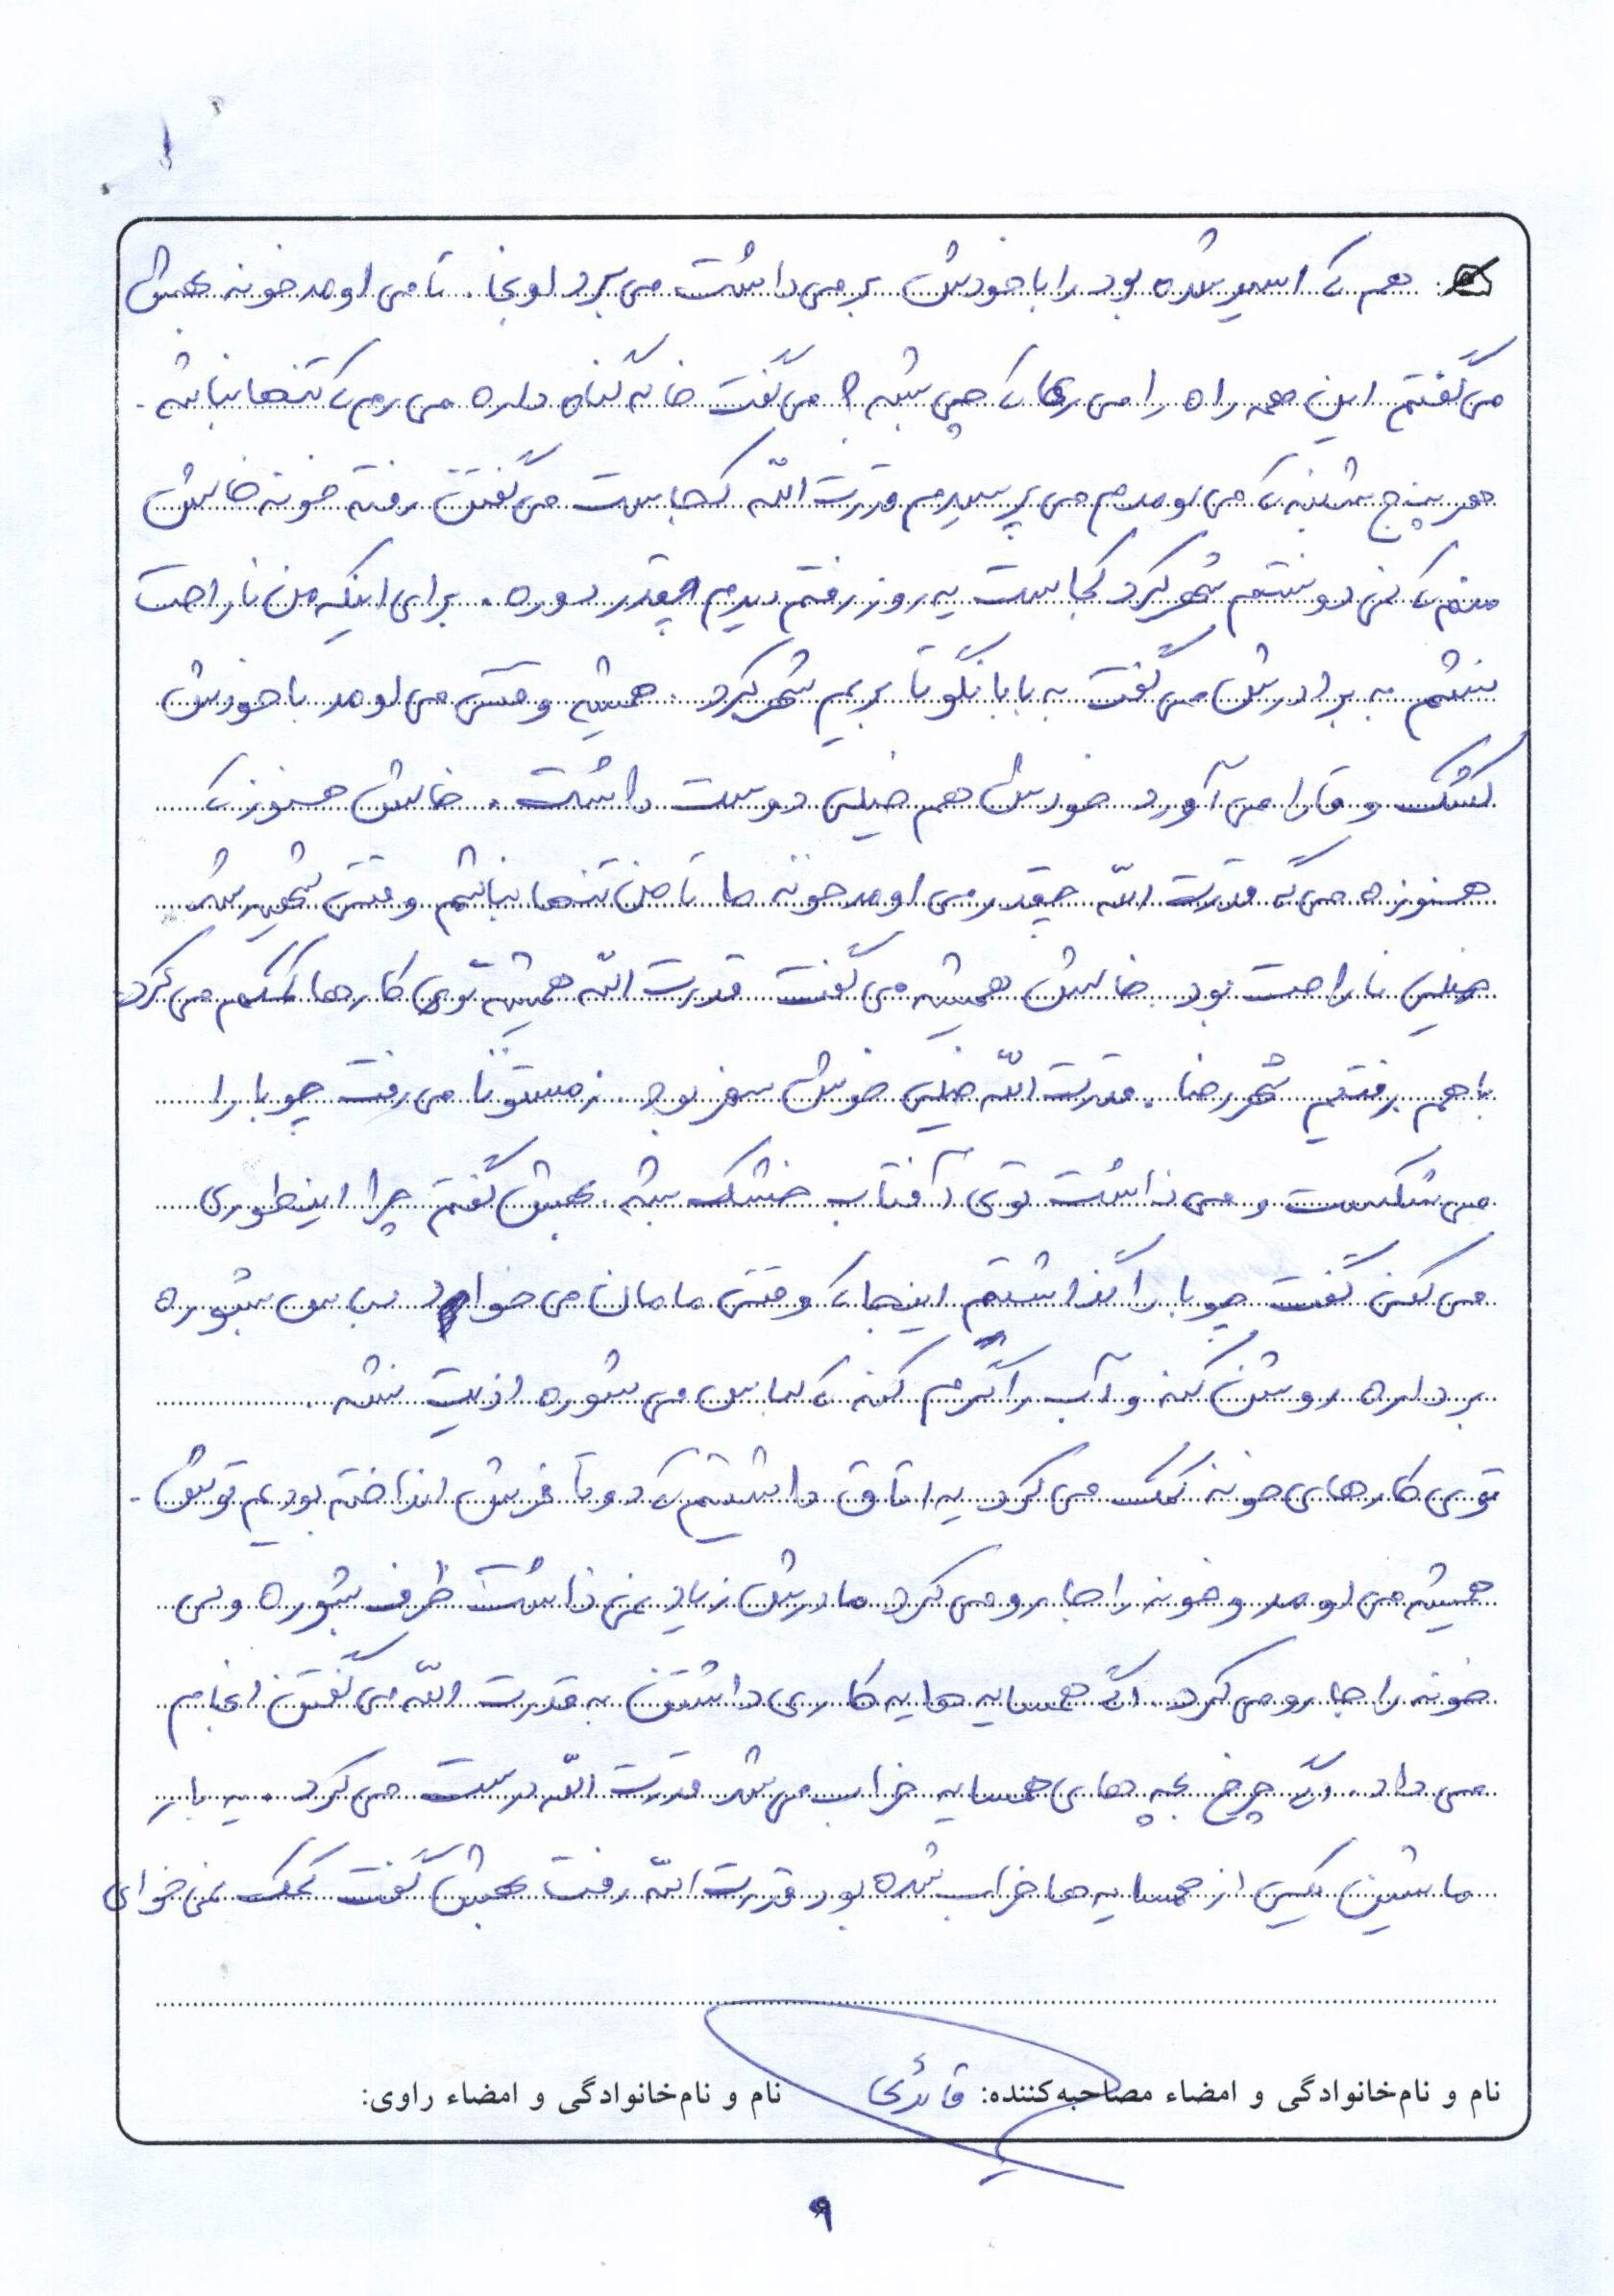 هم که اسیر شده بود را با خودش بر می داشت می برد اونجا. تا می اومد خونه بهش
می گفتم این همه راه را می ری که چی بشه؟ می گفت خاله گناه داره می رم که تنها نباشه.
هر پنج شنبه که می اومدم می پرسیدم قدرت الله کجاست می گفتن رفته خونه خالش
منم که نمی دونستم شهرکرد کجاست یه روز رفتم دیدم چقدر دوره. برای اینکه من ناراحت
نشم به برادرش می گفت به بابا نگو تا بریم شهرکرد. همیشه وقتی می اومد با خودش
کشک و قارا می آورد خودش هم خیلی دوست داشت. خالش هنوز که
هنوزه می گه قدرت الله چقدر می اومد خونه ما تا من تنها نباشم وقتی شهید شد
خیلی ناراحت بود. خالش همیشه می گفت قدرت الله همیشه توی کارها کمکم می کرد.
با هم رفتیم شهررضا. قدرت الله خیلی خوش سفر بود. زمستونا می رفت چوبا را
می شکست و می ذاشت توی آفتاب خشک بشه. بهش گفتم چرا اینطوری
می کنی گفت چوبا را گذاشتم اینجا که وقتی مامان می خواد لباس بشوره
بر داره روشن کنه و آب را گرم کنه که لباس می شوره اذیت نشه.
توی کارهای خونه کمک می کرد یه اتاق داشتیم که دو تا فرش انداخته بودیم توش.
همیشه می اومد و خونه را جارو می کرد مادرش زیاد نمی ذاشت ظرف بشوره ولی
خونه را جارو می کرد. اگه همسایه ها یه کاری داشتن به قدرت الله می گفتن انجام
می داد. اگه چرخ بچه های همسایه خراب می شد قدرت الله درست می کرد. یه بار
ماشین یکی از همسایه ها خراب شده بود قدرت الله رفت بهش گفت کمک نمی خوای
نام و نام‌خانوادگی و امضاء مصاحبه‌کننده: قائدی نام و نام‌خانوادگی و امضاء راوی:
۹